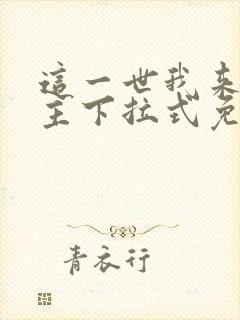 這一世我来
主下拉式免
青衣行